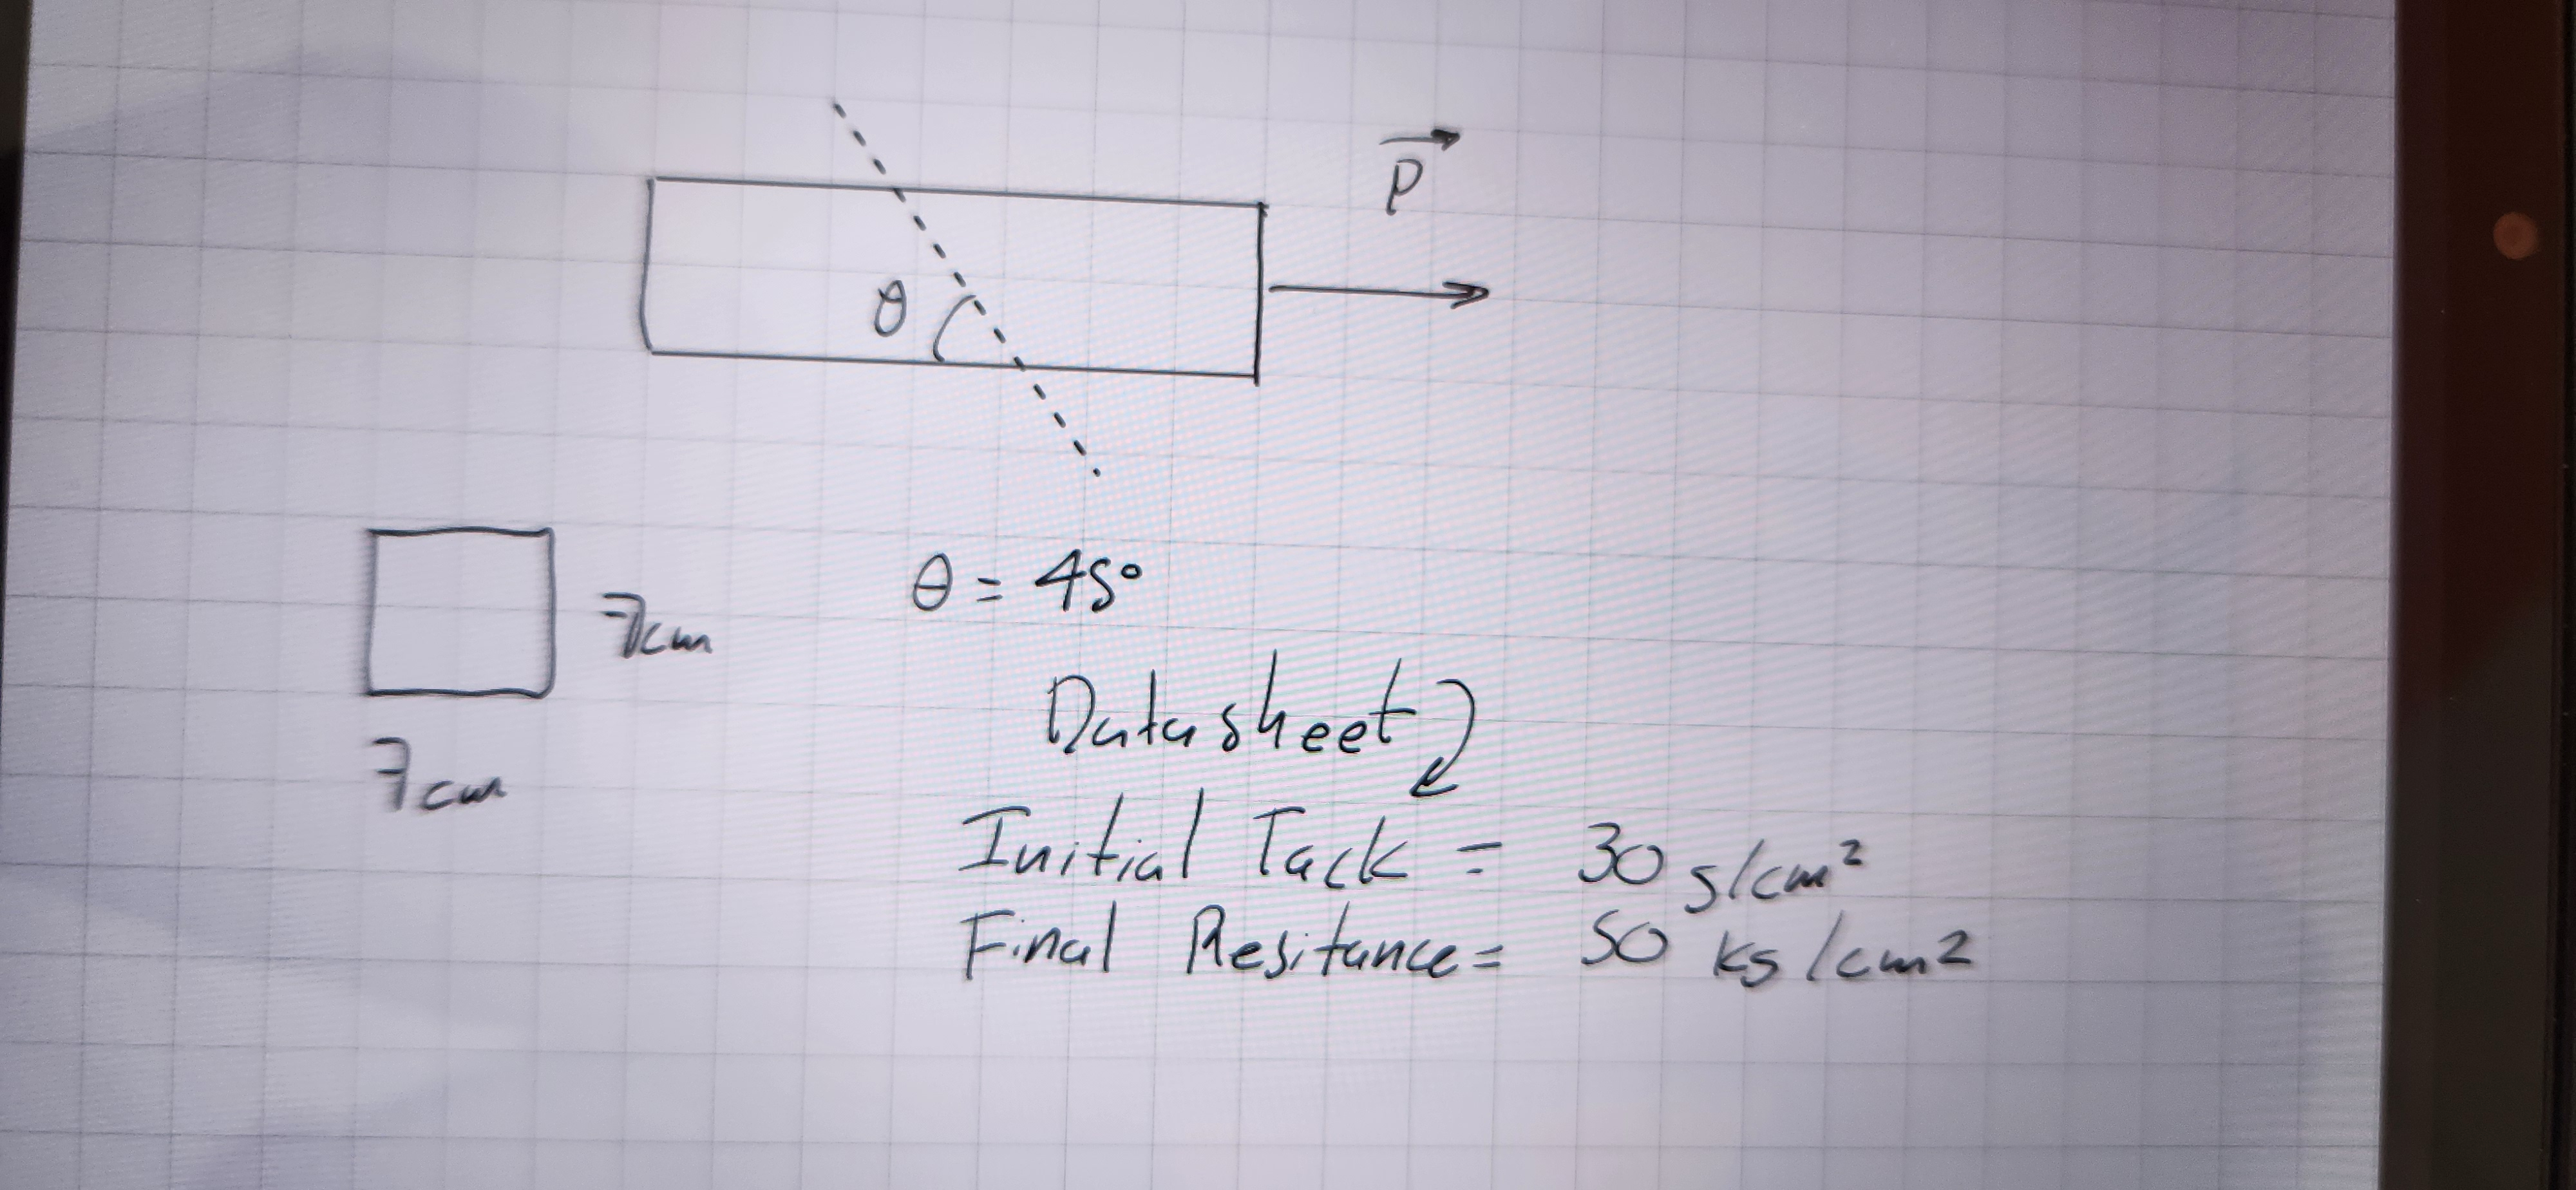 P
θ
θ = 45°
7cm
7cm
Datasheet
Initial Tack = 30 g/cm²
Final Resitance = 50 kg/cm2